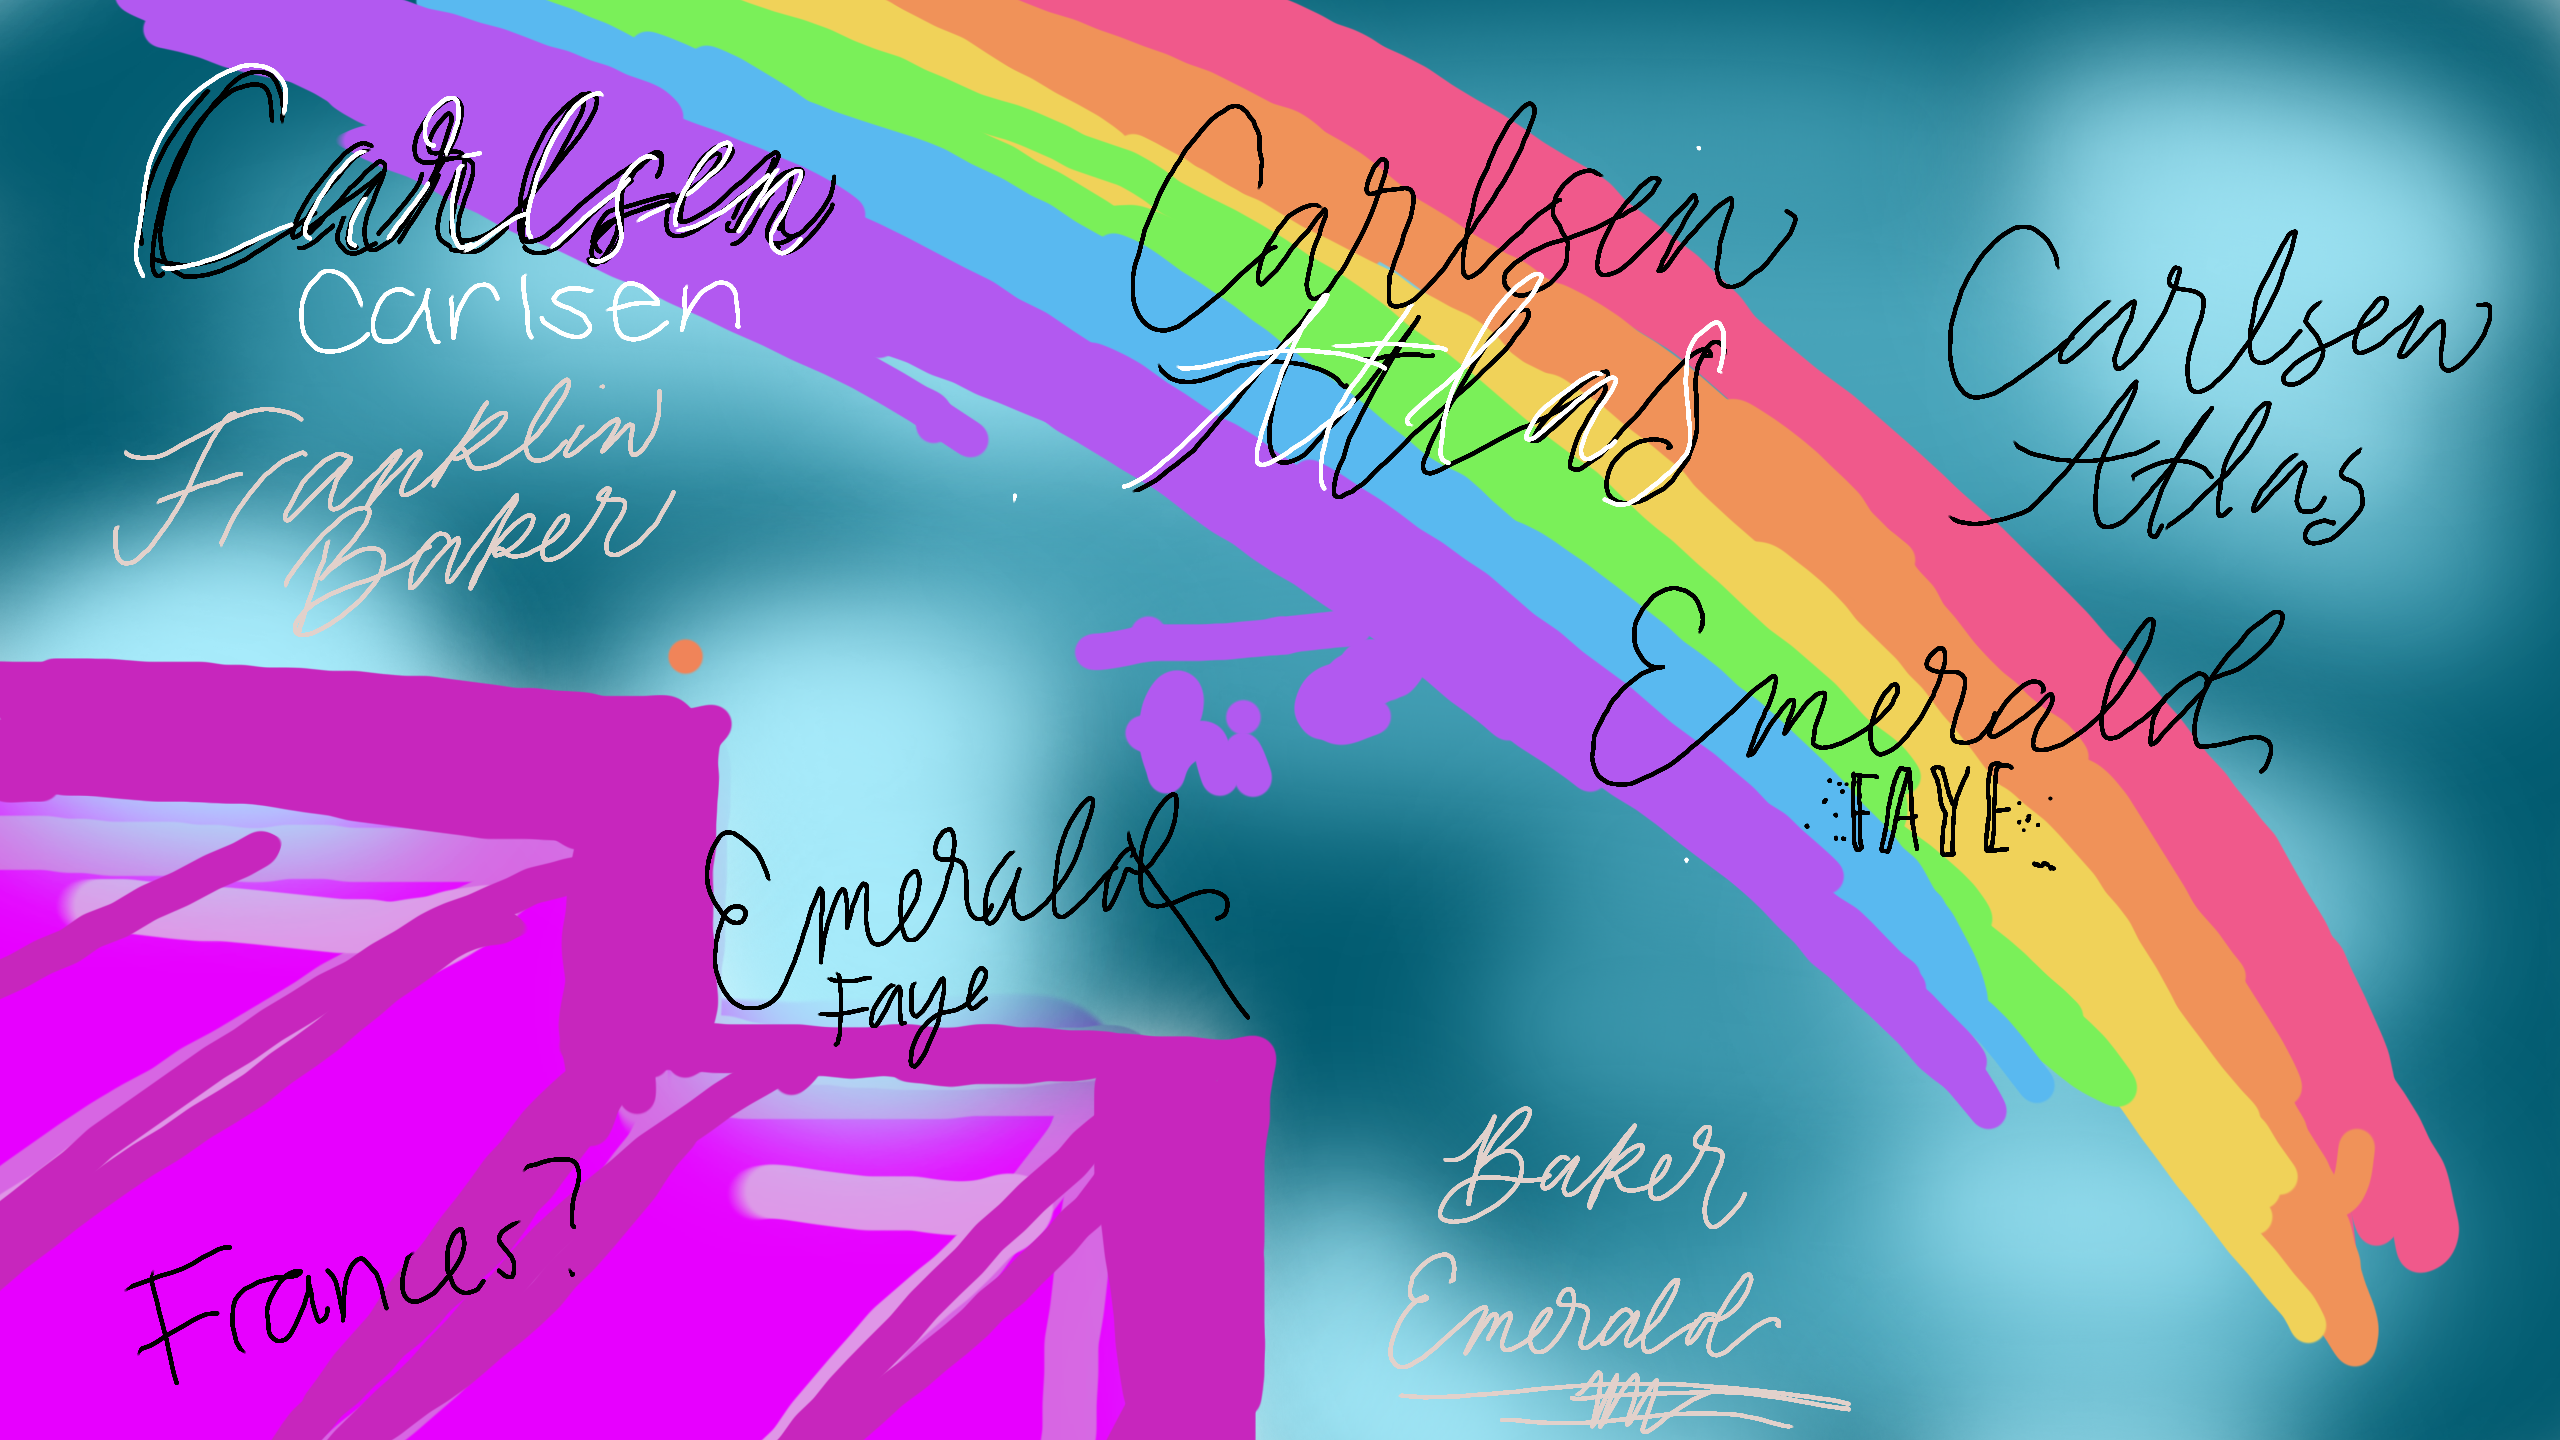 Carlsen
Carlsen
Franklin
Baker
Carlsen
Atlas
Carlsen
Atlas
Emerald
FAYE
Hi
Emerald
Faye
Frances?
Baker
Emerald